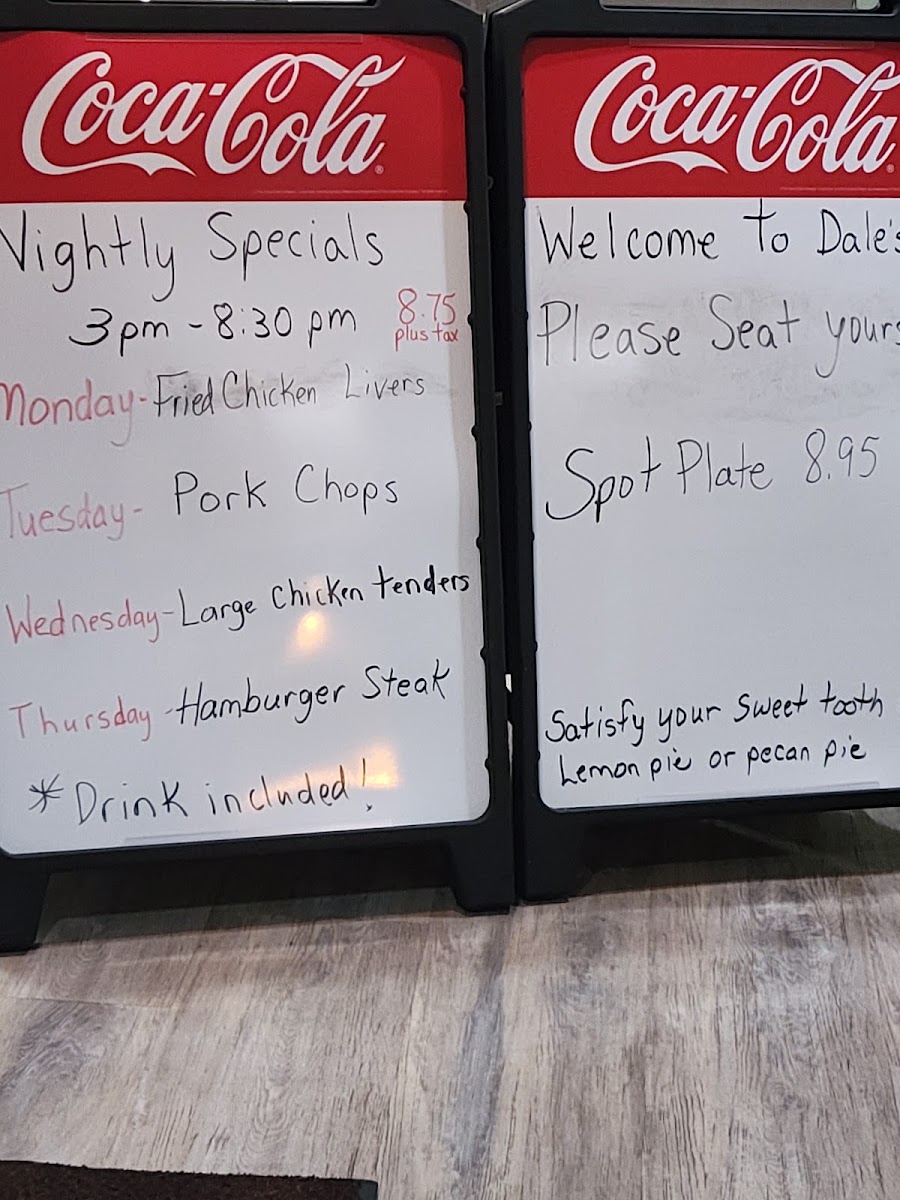 Coca-Cola
Nightly Specials
3pm - 8:30 pm 8.75 plus tax
Monday - Fried Chicken Livers
Tuesday - Pork Chops
Wednesday - Large chicken tenders
Thursday - Hamburger Steak
* Drink included!
Coca-Cola
Welcome to Dale's
Please Seat yours
Spot Plate 8.95
Satisfy your sweet tooth
Lemon pie or pecan pie